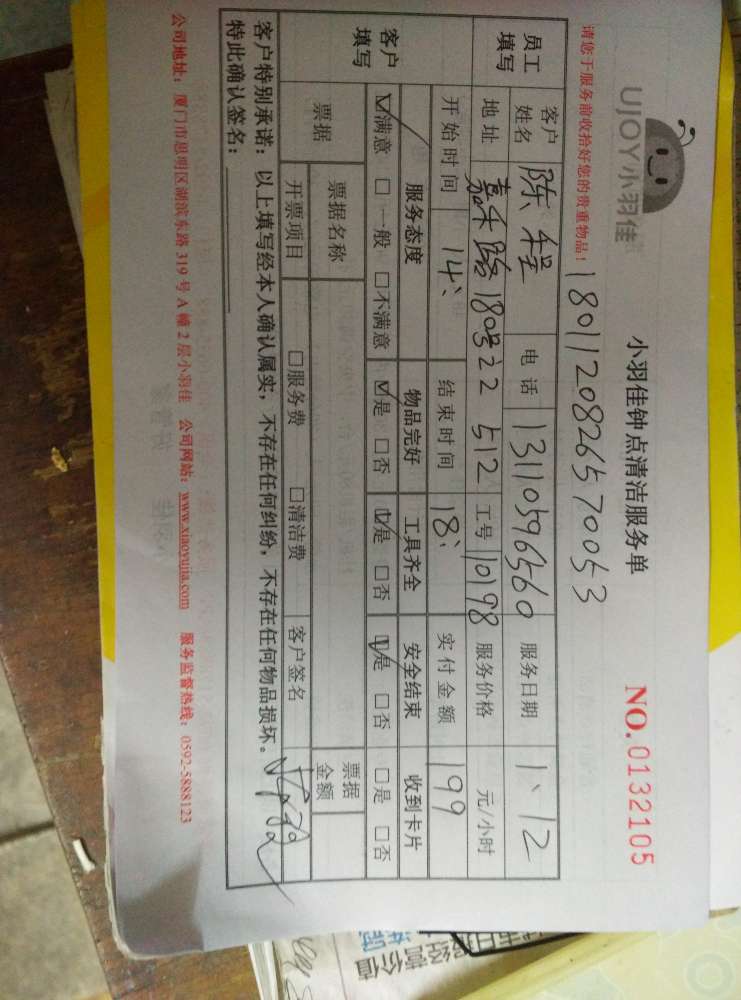 UJOY小羽佳
小羽佳钟点清洁服务单
NO.0132105
请您于服务前收拾好您的贵重物品!
1801120826570053
员工填写
客户姓名 陈程 电话 13110596560 服务日期 1、12
地址 嘉禾路180号之2 512 工号 10198 服务价格 元/小时
开始时间 14: 结束时间 18: 实付金额 199
客户填写
服务态度 物品完好 工具齐全 安全结束 收到卡片
☑满意 □一般 □不满意 ☑是 □否 ☑是 □否 ☑是 □否 □是 □否
票据 票据名称 票据金额
开票项目 □服务费 □清洁费 客户签名
客户特别承诺:以上填写经本人确认属实,不存在任何纠纷,不存在任何物品损坏。
特此确认签名:
公司地址:厦门市思明区湖滨东路319号A幢2层小羽佳 公司网站:www.xiaoyujia.com 服务监督热线:0592-5888123